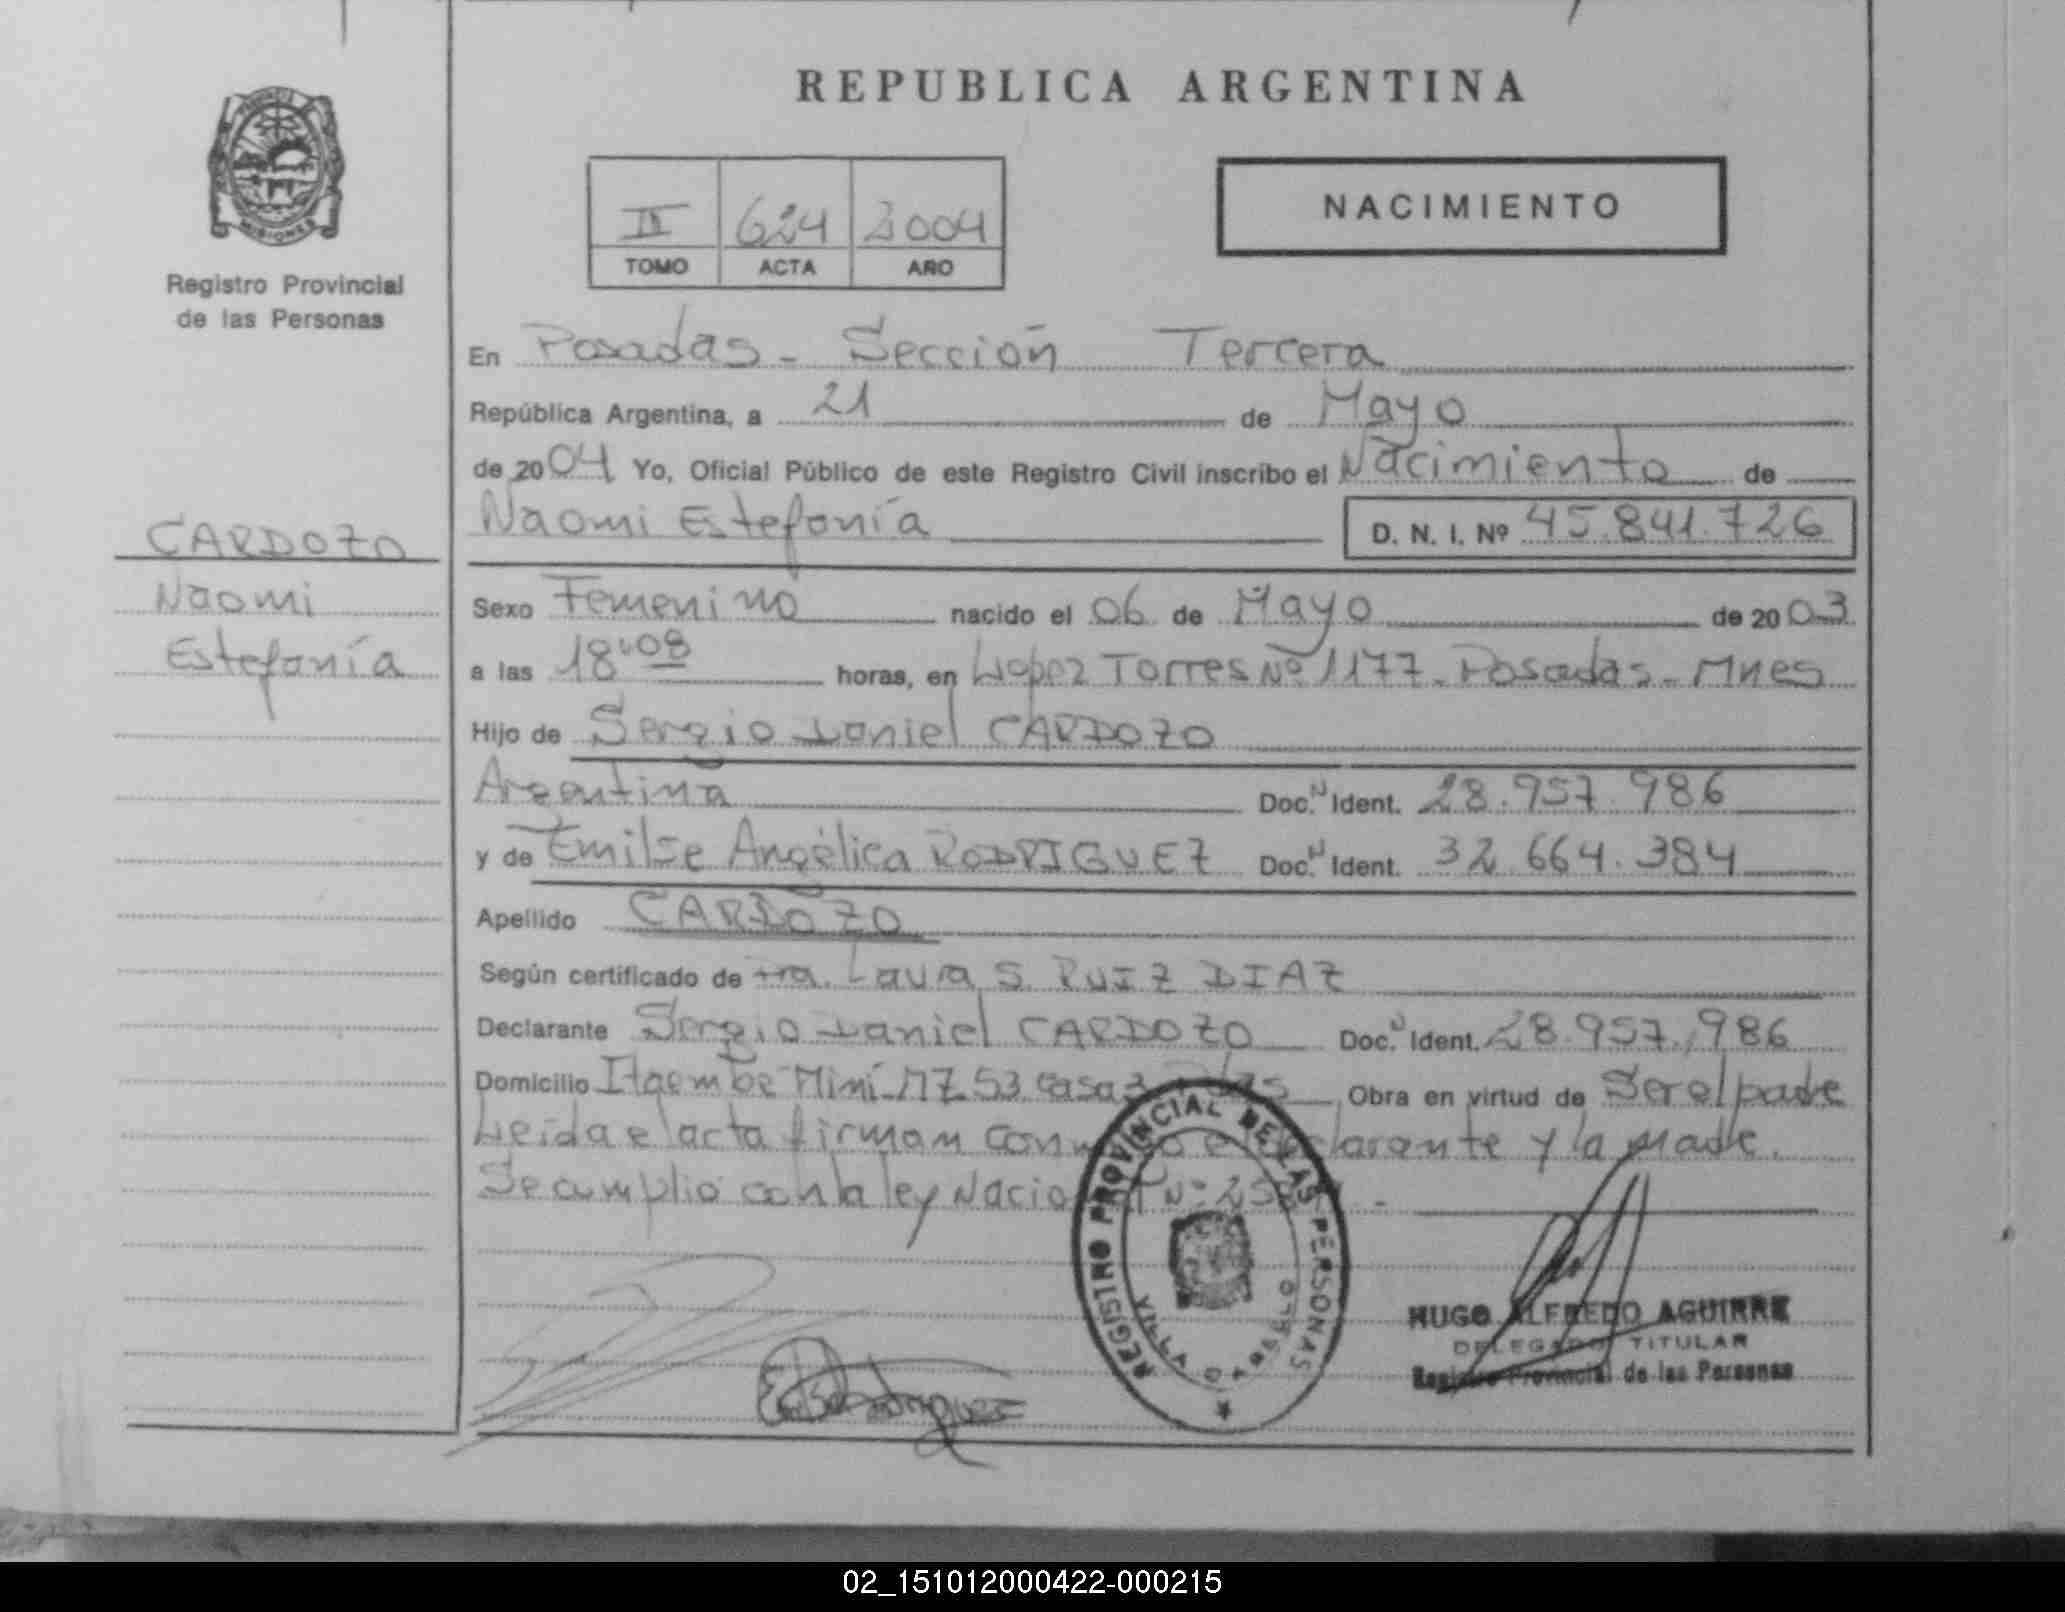 REPUBLICA ARGENTINA
MISIONES
Registro Provincial
de las Personas
624 2004
TOMO ACTA AÑO
NACIMIENTO
CARDOZO
Naomi
Estefanía
En Posadas - Sección Tercera
República Argentina, a 21 de Mayo
de 2004 Yo, Oficial Público de este Registro Civil inscribo el Nacimiento de
Naomi Estefanía D. N. I. Nº 45.841.726
Sexo Femenino nacido el 06 de Mayo de 2003
a las 18:08 horas, en López Torres Nº 1177 - Posadas - Mnes
Hijo de Sergio Daniel CARDOZO
Argentina Doc. N Ident. 28.957.986
y de Emilse Angélica RODRIGUEZ Doc. N Ident. 32.664.384
Apellido CARDOZO
Según certificado de Dra. Laura S. RUIZ DIAZ
Declarante Sergio Daniel CARDOZO Doc. N Ident. 28.957.986
Domicilio Itaembé Miní - MZ 53 casa 3 Obra en virtud de Ser el padre
Leída el acta firman la madre.
Se cumplió con la ley Nacional Nº
REGISTRO PROVINCIAL DE LAS PERSONAS
HUGO ALFREDO AGUIRRE
DELEGADO TITULAR
Registro Provincial de las Personas
02_151012000422-000215